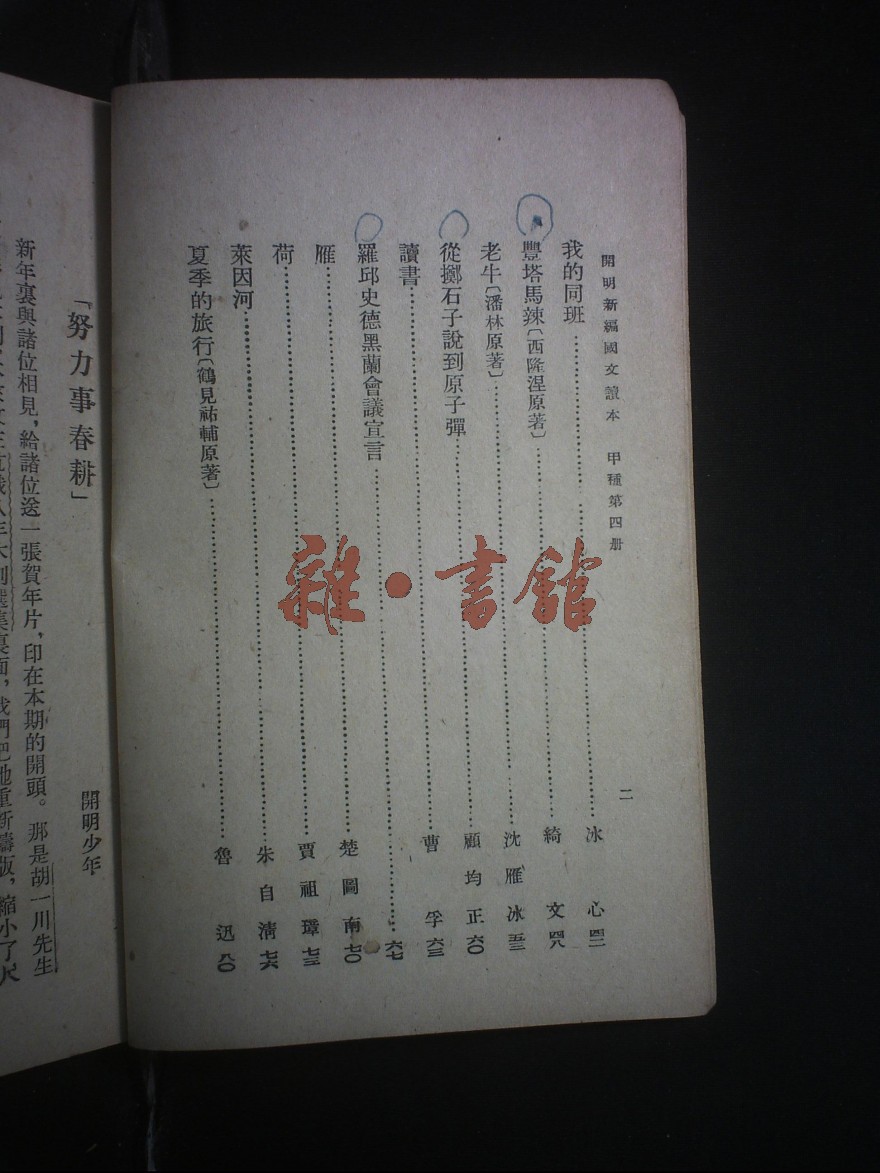 開明新編國文讀本　甲種第四册
二
我的同班……冰心　四二
豐塔馬辣〔西隆涅原著〕……綺文　四八
老牛〔潘林原著〕……沈雁冰　五三
從擲石子說到原子彈……顧均正　六〇
讀書……曹孚　六三
羅邱史德黑蘭會議宣言……六七
雁……楚圖南　七〇
荷……賈祖璋　七三
萊因河……朱自清　七六
夏季的旅行〔鶴見祐輔原著〕……魯迅　八〇
雜·書館
「努力事春耕」
開明少年
新年裏與諸位相見，給諸位送一張賀年片，印在本期的開頭。那是胡一川先生
木刻選集裏面，我們把牠重新鑄版，縮小了尺